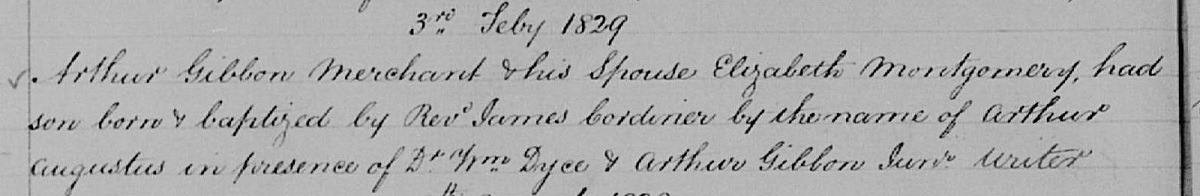 3rd Feby 1829
Arthur Gibbon Merchant & his Spouse Elizabeth Montgomery, had
son born & baptized by Revd James Cordiner by the name of Arthur
Augustus in presence of Dr Wm Dyce & Arthur Gibbon Junr Writer